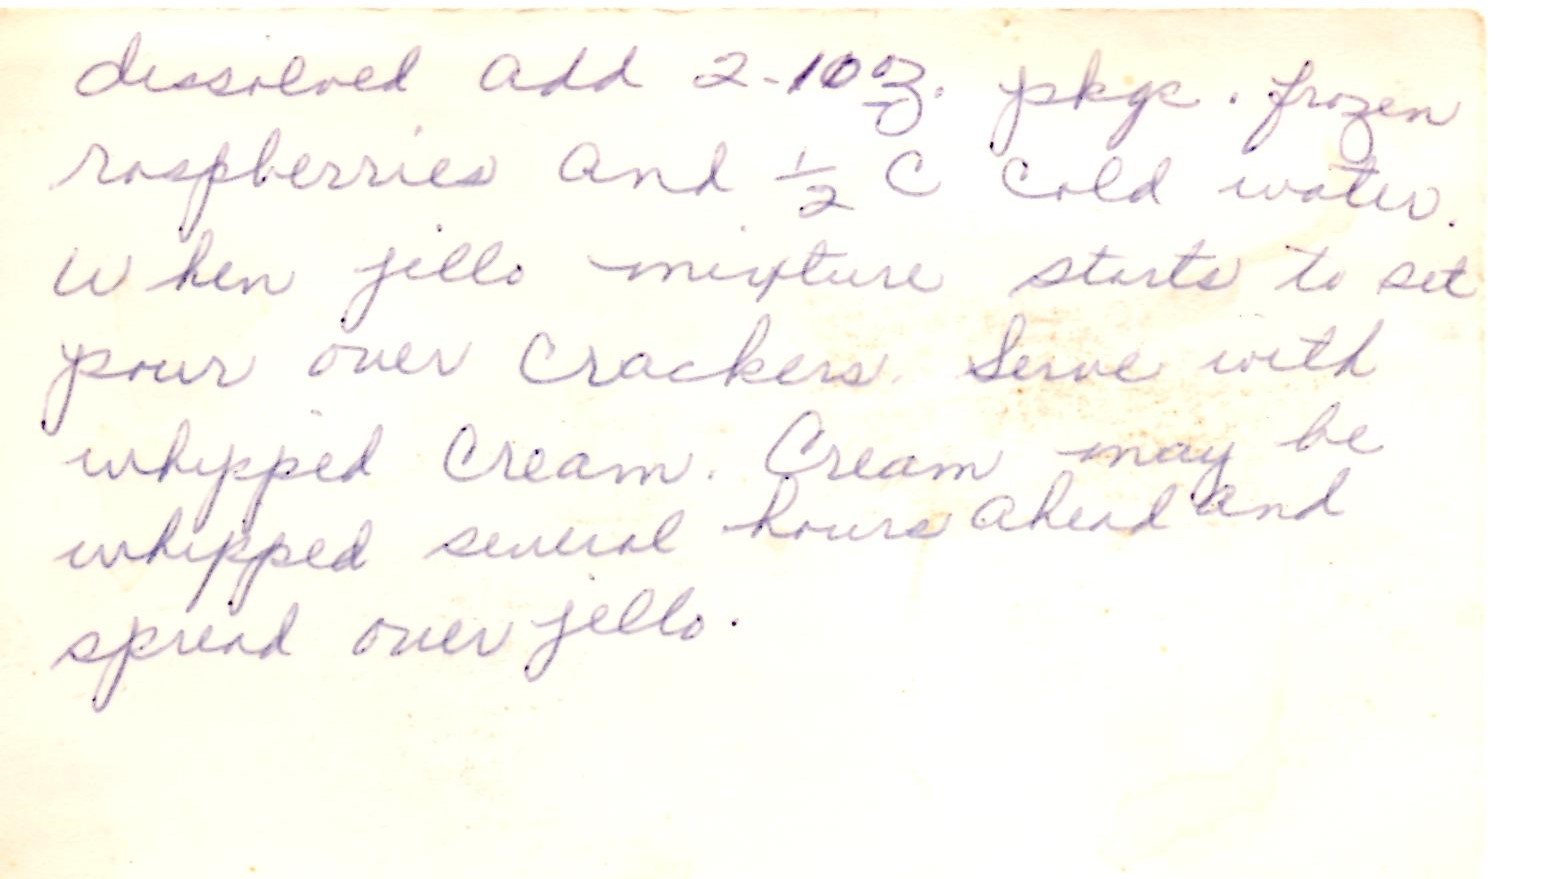 dissolved add 2-10 oz. pkgs. frozen
raspberries and ½ C cold water.
When jello mixture starts to set
pour over crackers. Serve with
whipped cream. Cream may be
whipped several hours ahead and
spread over jello.